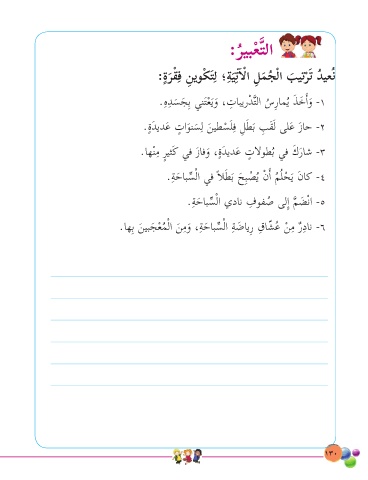 التَّعْبيرُ:
نُعيدُ تَرْتيبَ الْجُمَلِ الْآتِيَةِ؛ لِتَكْوينِ فِقْرَةٍ:
١- وَأَخَذَ يُمارِسُ التَّدْريباتِ، وَيَعْتَني بِجَسَدِهِ.
٢- حازَ عَلى لَقَبِ بَطَلِ فِلَسْطينَ لِسَنَواتٍ عَديدَةٍ.
٣- شارَكَ في بُطولاتٍ عَديدَةٍ، وَفازَ في كَثيرٍ مِنْها.
٤- كانَ يَحْلُمُ أَنْ يُصْبِحَ بَطَلاً في السِّباحَةِ.
٥- انْضَمَّ إِلى صُفوفِ نادي السِّباحَةِ.
٦- نادِرٌ مِنْ عُشّاقِ رِياضَةِ السِّباحَةِ، وَمِنَ الْمُعْجَبينَ بِها.
١٣٠